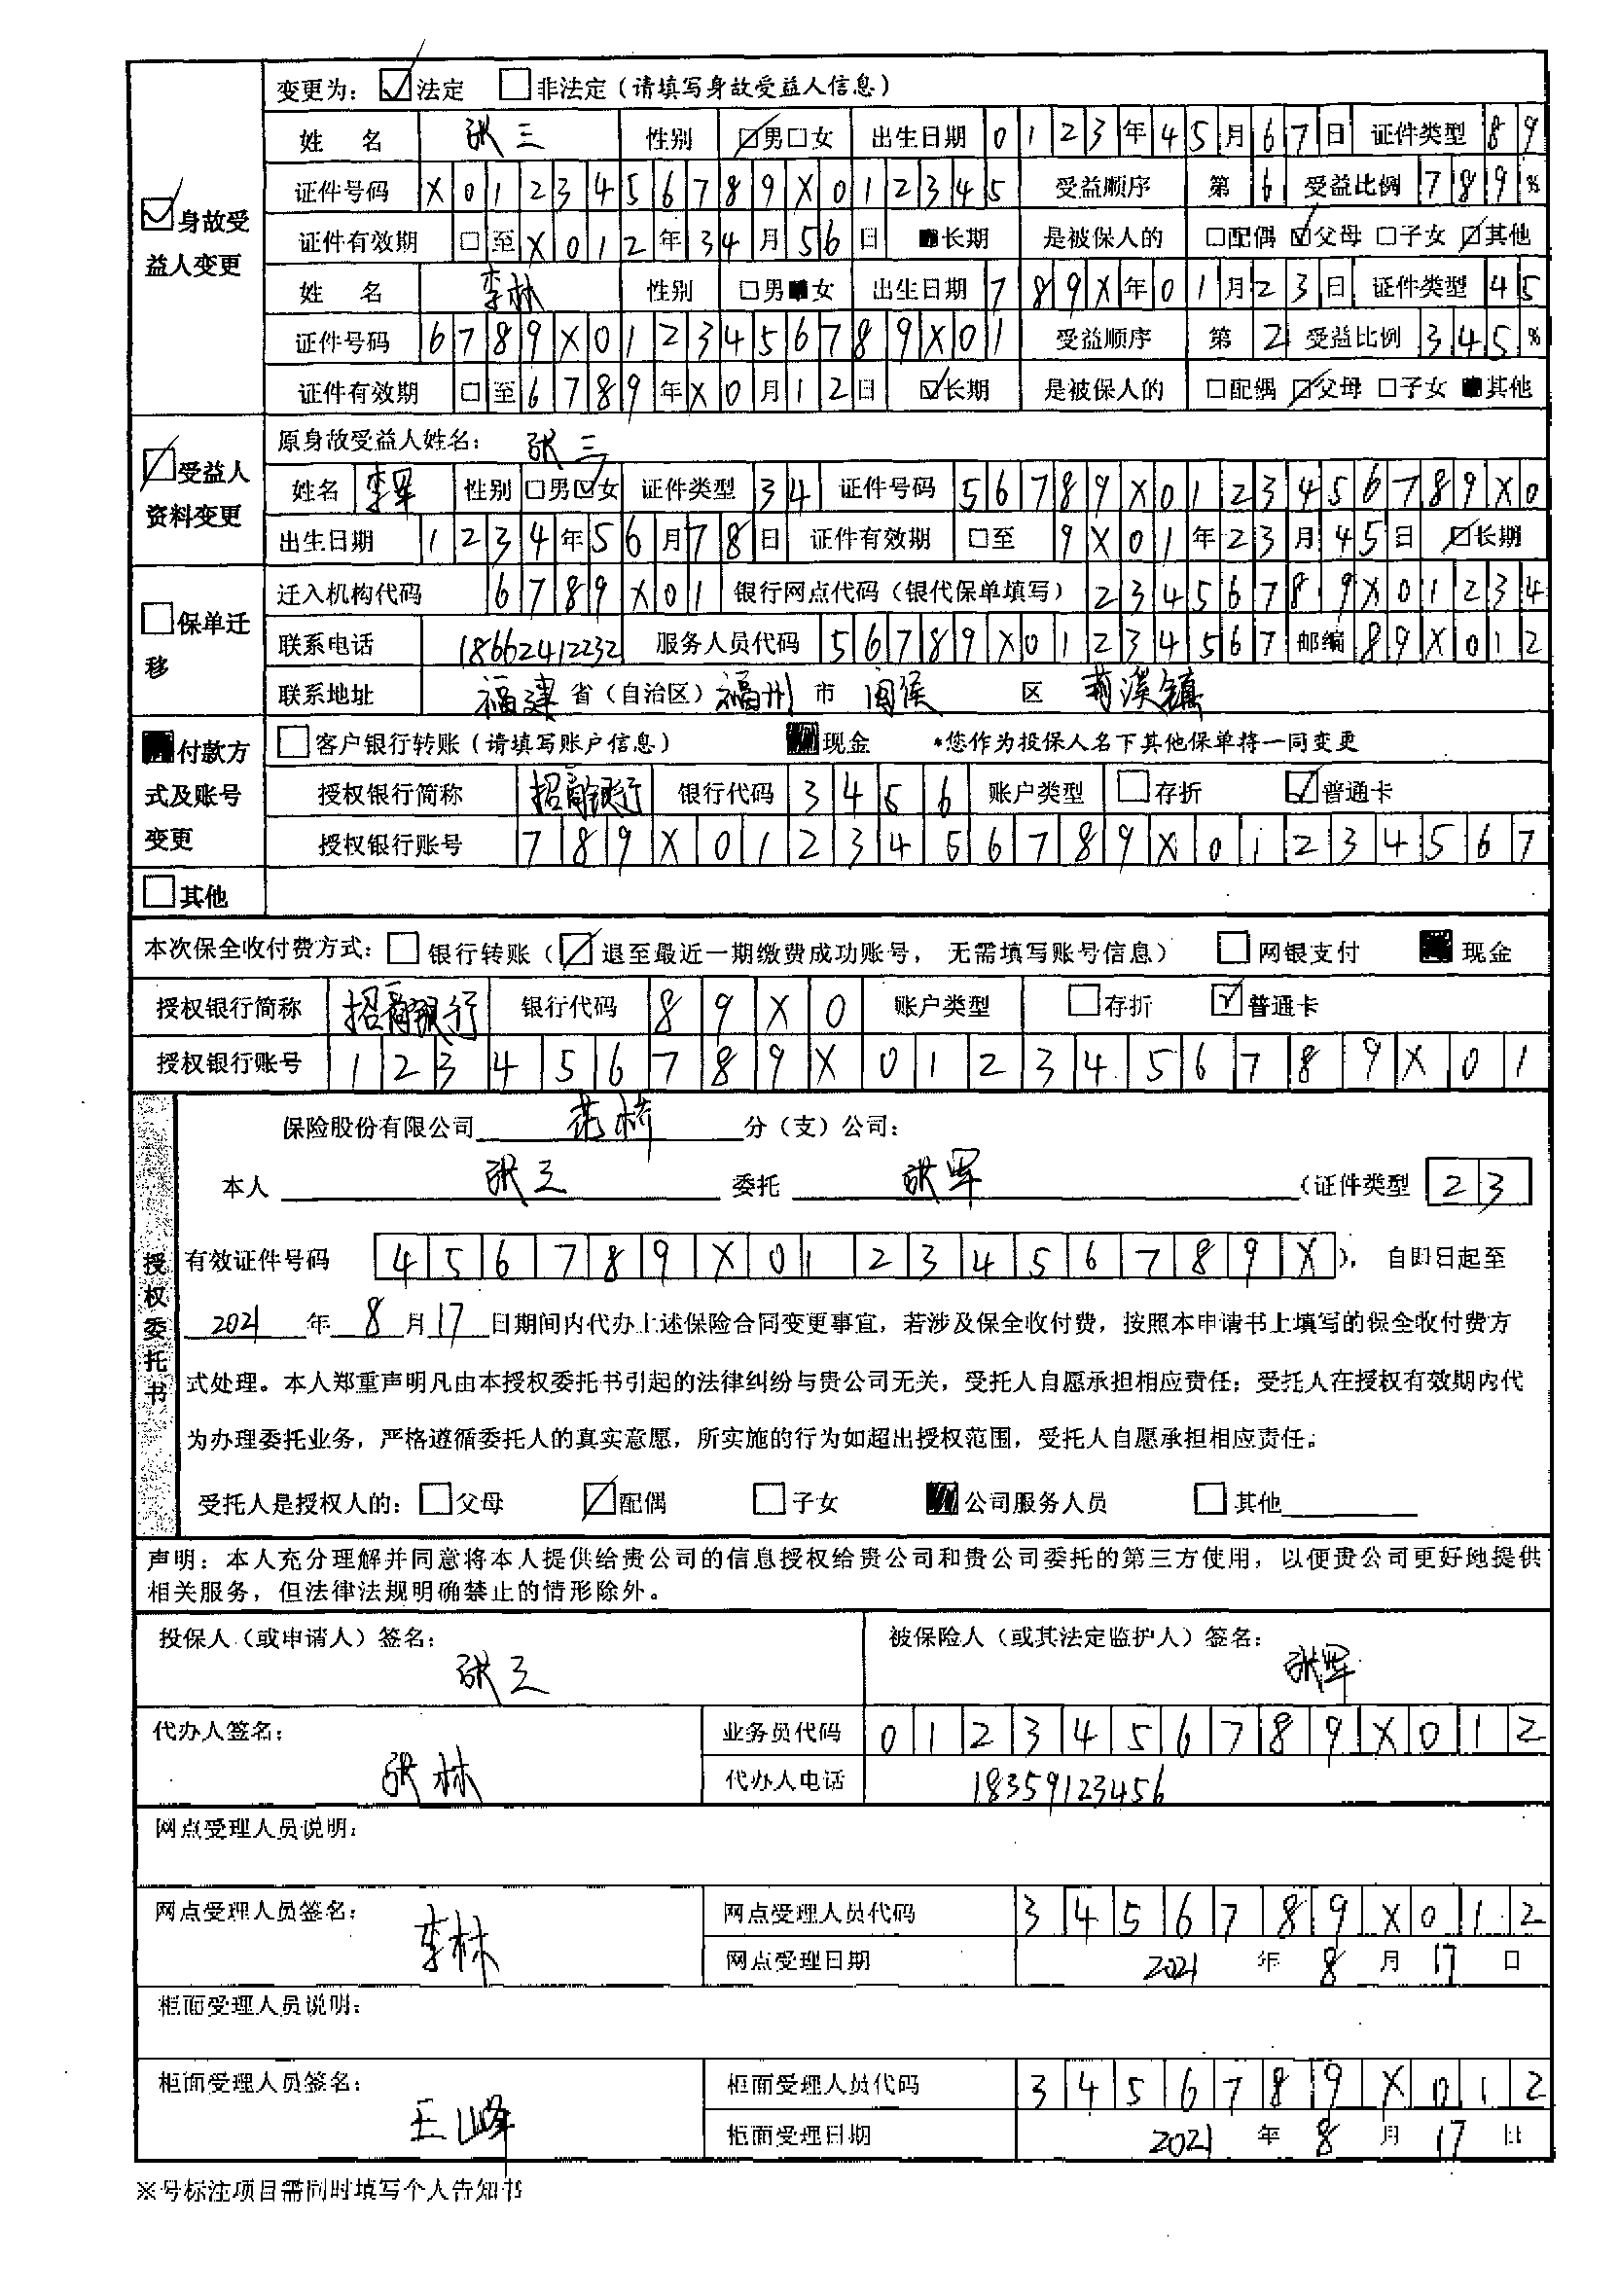 变更为： ☑法定 □非法定（请填写身故受益人信息）
姓 名 张三 性别 ☑男□女 出生日期 0123年45月67日 证件类型 89
证件号码 X0123456789X012345 受益顺序 第6 受益比例 789%
☑身故受益人变更
证件有效期 □至X012年34月56日 ■长期 是被保人的 □配偶☑父母□子女☑其他
姓 名 李林 性别 □男■女 出生日期 789X年01月23日 证件类型 45
证件号码 6789X0123456789X01 受益顺序 第2 受益比例 345%
证件有效期 □至6789年X0月12日 ☑长期 是被保人的 □配偶☑父母□子女■其他
☑受益人资料变更
原身故受益人姓名： 张三
姓名 李军 性别 □男☑女 证件类型 34 证件号码 56789X0123456789X0
出生日期 1234年56月78日 证件有效期 □至 9X01年23月45日 ☑长期
□保单迁移
迁入机构代码 6789X01 银行网点代码（银代保单填写） 23456789X01234
联系电话 18662412232 服务人员代码 56789X01234567 邮编 89X012
联系地址 福建 省（自治区） 福州 市 闽侯 区 荆溪镇
■付款方式及账号变更
□客户银行转账（请填写账户信息） ■现金 *您作为投保人名下其他保单将一同变更
授权银行简称 招商银行 银行代码 3456 账户类型 □存折 ☑普通卡
授权银行账号 789X0123456789X01234567
□其他
本次保全收付费方式： □银行转账（☑退至最近一期缴费成功账号， 无需填写账号信息） □网银支付 ■现金
授权银行简称 招商银行 银行代码 89X0 账户类型 □存折 ☑普通卡
授权银行账号 123456789X0123456789X01
授权委托书
保险股份有限公司 花桥 分（支）公司：
本人 张三 委托 张军 （证件类型 23
有效证件号码 456789X0123456789X ）， 自即日起至
2021 年 8 月 17 日期间内代办上述保险合同变更事宜，若涉及保全收付费，按照本申请书上填写的保全收付费方
式处理。本人郑重声明凡由本授权委托书引起的法律纠纷与贵公司无关，受托人自愿承担相应责任；受托人在授权有效期内代
为办理委托业务，严格遵循委托人的真实意愿，所实施的行为如超出授权范围，受托人自愿承担相应责任。
受托人是授权人的： □父母 ☑配偶 □子女 ■公司服务人员 □其他
声明：本人充分理解并同意将本人提供给贵公司的信息授权给贵公司和贵公司委托的第三方使用，以便贵公司更好地提供
相关服务，但法律法规明确禁止的情形除外。
投保人（或申请人）签名： 张三 被保险人（或其法定监护人）签名： 张军
代办人签名： 张林 业务员代码 0123456789X012
代办人电话 18359123456
网点受理人员说明：
网点受理人员签名： 李林 网点受理人员代码 3456789X012
网点受理日期 2021 年 8 月 17 日
柜面受理人员说明：
柜面受理人员签名： 王峰 柜面受理人员代码 3456789X012
柜面受理日期 2021 年 8 月 17 日
※号标注项目需同时填写个人告知书